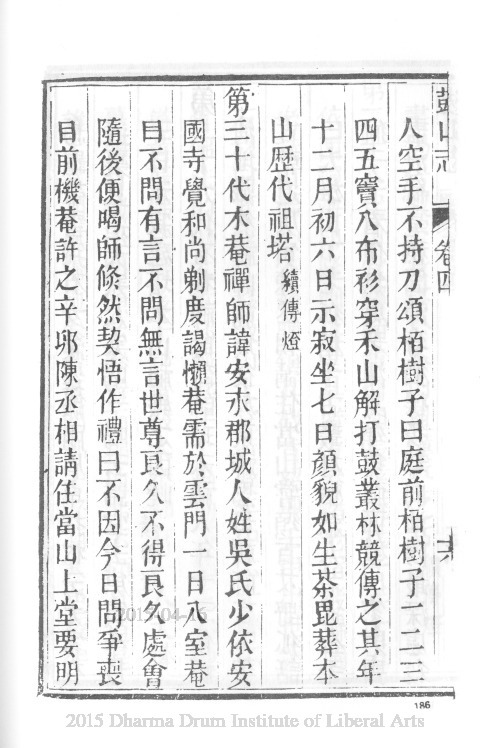 鼓山志 卷四
人空手不持刀頌栢樹子曰庭前栢樹子一二三
四五竇八布衫穿禾山解打鼓叢林競傳之其年
十二月初六日示寂坐七日顏貌如生茶毘葬本
山歷代祖塔 續傳燈
第三十代木菴禪師諱安永郡城人姓吳氏少依安
國寺覺和尚剃度謁懶菴需於雲門一日入室菴
曰不問有言不問無言世尊良久不得良久處會
隨後便喝師倐然契悟作禮曰不因今日問爭喪
目前機菴許之辛邜陳丞相請住當山上堂要明
2015-04-16
186
2015 Dharma Drum Institute of Liberal Arts